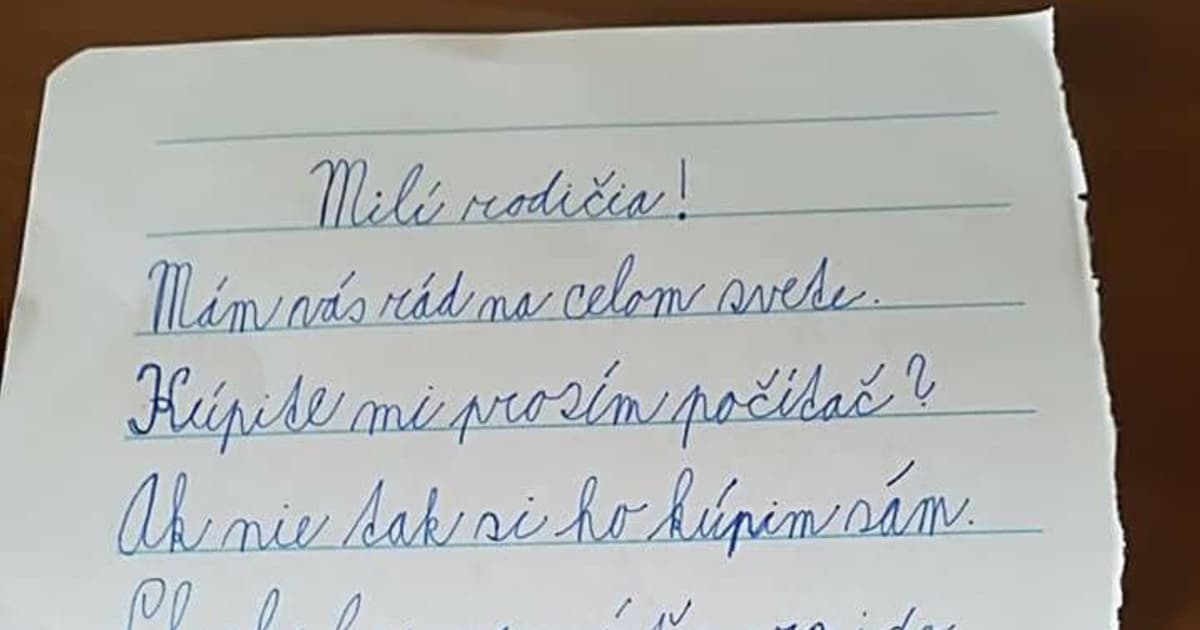 Milí rodičia!
Mám vás rád na celom svete.
Kúpite mi prosím počítač?
Ak nie tak si ho kúpim sám.